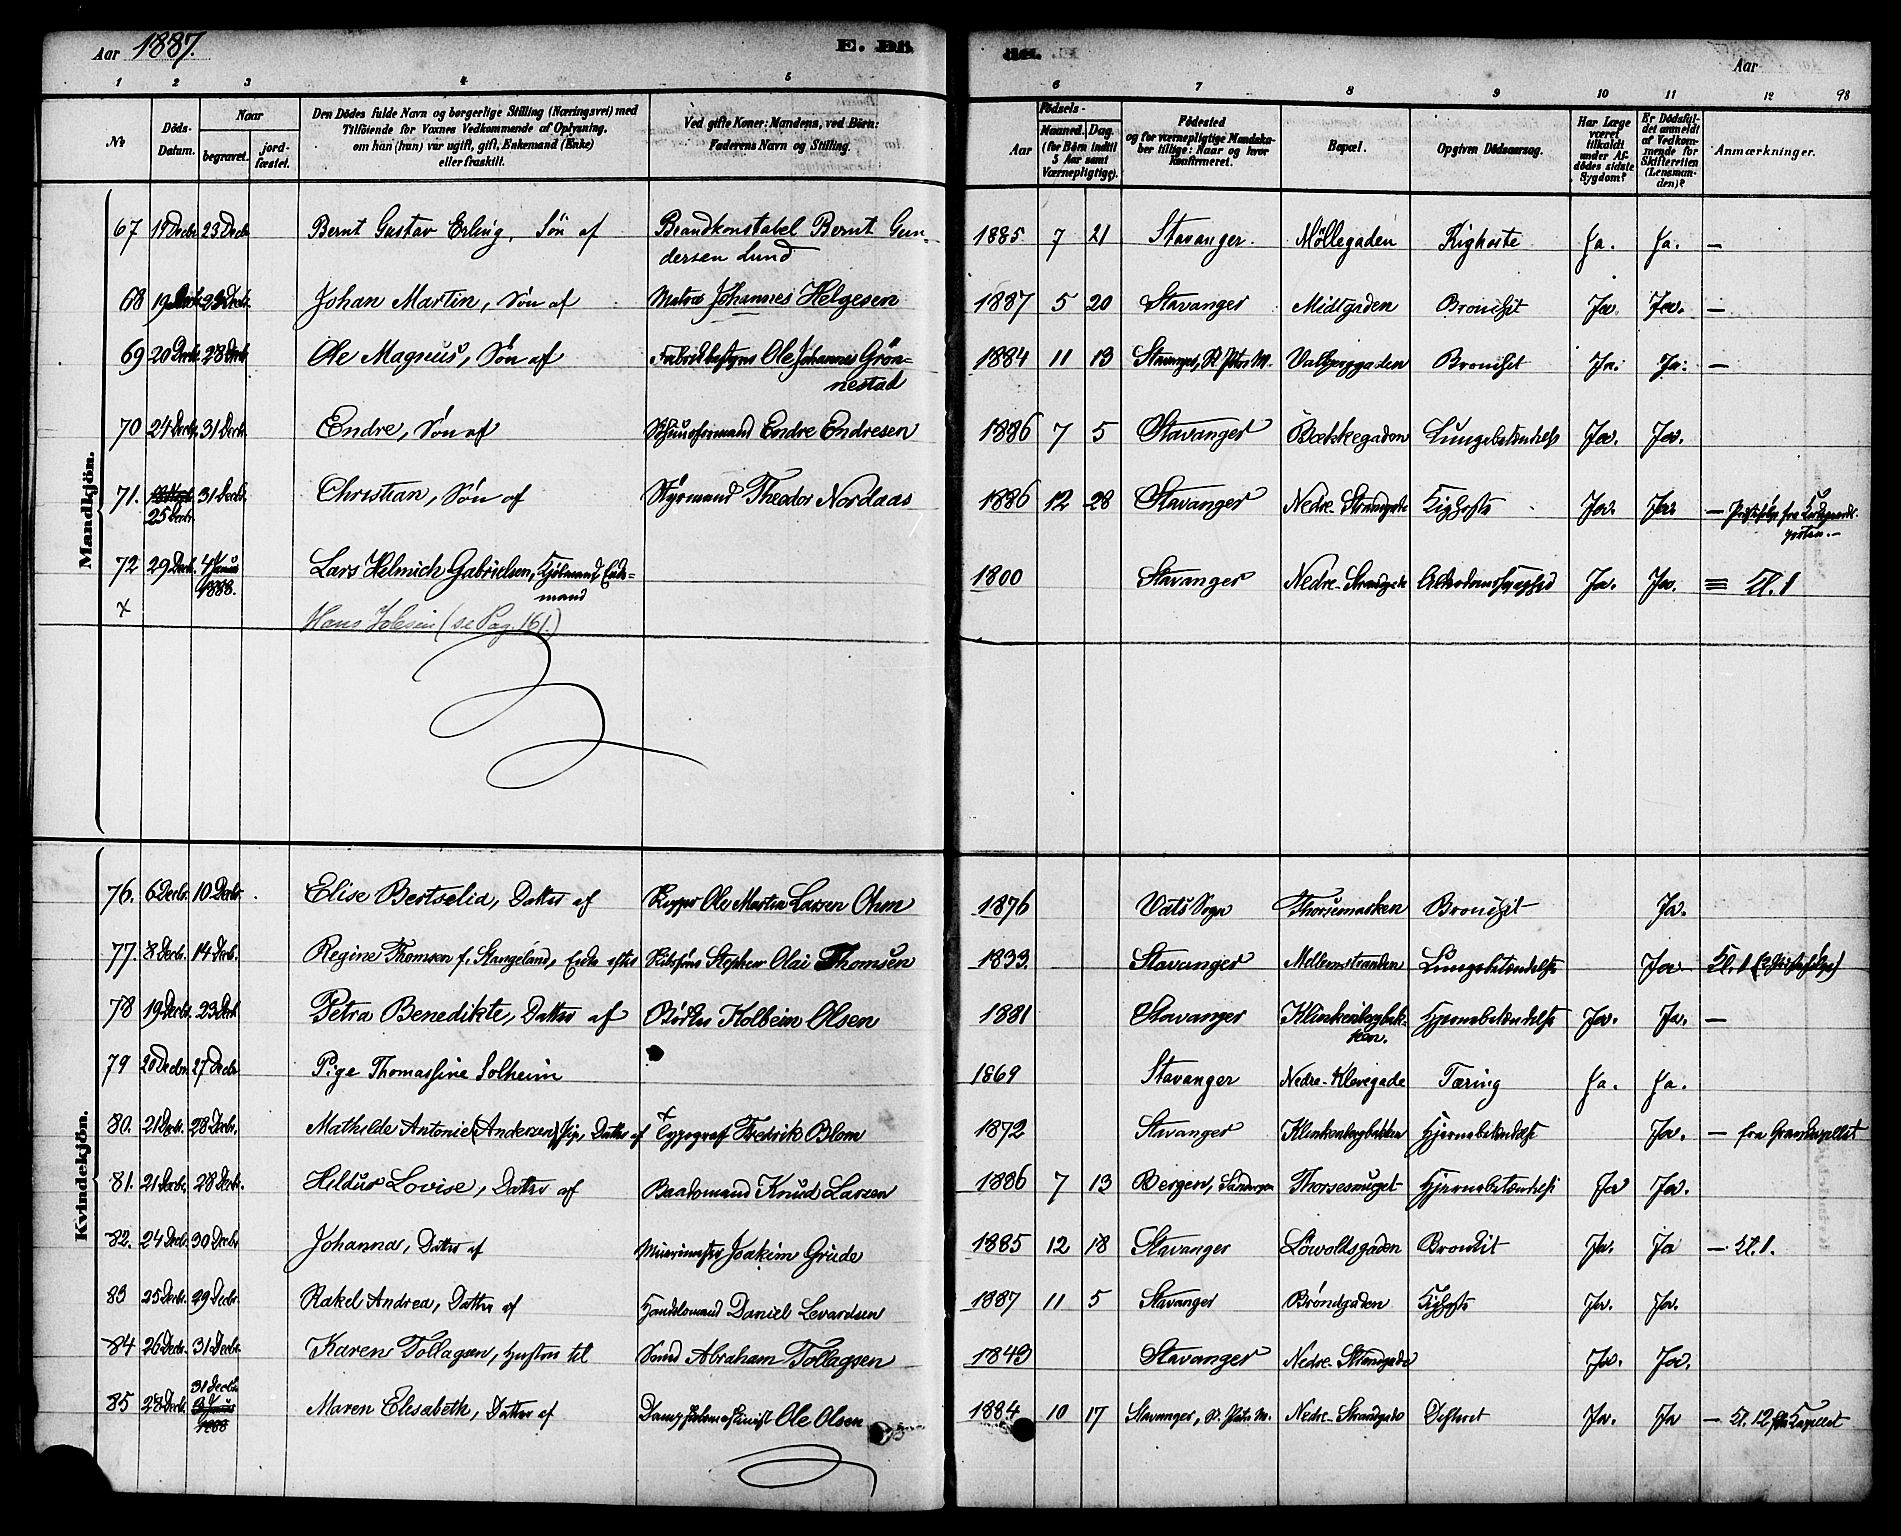 Aar 1887.
E. Dö
de.
Aar
1 2 3 4 5 6 7 8 9 10 11 12 98
No
Döds-Datum.
Naar
begravet.
jord-fæstet.
Den Dödes fulde Navn og borgerlige Stilling (Næringsvei) med
Tilföiende for Voxnes Vedkommende af Oplysning,
om han (hun) var ugift, gift, Enkemand (Enke)
eller fraskilt.
Ved gifte Koner: Mandens, ved Börn:
Faderens Navn og Stilling.
Födsels-
Aar
Maaned. Dag.
(for Börn indtil
5 Aar samt
Værnepligtige).
Födested
og for værnepligtige Mandska-
ber tillige: Naar og hvor
konfirmeret.
Bopæl.
Opgiven Dödsaarsag.
Har Læge
været
tilkaldt
under Af-
dödes sidste
Sygdom?
Er Dödsfal-
det anmeldt
af Vedkom-
mende for
Skifteretten
(Lensman-
den)?
Anmærkninger.
Mandkjön.
67 19 Decbr. 23 Decbr Bernt Gustav Erling, Sön af Brandkonstabel Bernt Gun-
dersen Lund 1885 7 21 Stavanger. Möllegaden Kighoste Ja. Ja. —
68 19 Decbr. 23 Decbr. Johan Martin, Sön af Matros Johannes Helgesen 1887 5 20 Stavanger Midtgaden Bronchit Ja. Ja. —
69 20 Decbr. 28 Decbr. Ole Magnus, Sön af Fabrikbestyrer Ole Johannes Grön-
nestad 1884 11 13 Stavanger, St. Petri M. Valberggaden Bronchit Ja. Ja. —
70 24 Decbr. 31 Decbr. Endre, Sön af Endre Endresen 1886 7 5 Stavanger Bækkegaden Lungebetændelse Ja. Ja.
71. 25 Decbr. 31 Decbr. Christian, Sön af Styrmand Theodor Nordaas 1886 12 28 Stavanger Nedre Strandgade Kighoste Ja. Ja. —
72 29 Decbr. 4 Januar
1888. Lars Helmich Gabrielsen, Enke-
mand 1800 Stavanger Nedre Strandgade Alderdomssvaghed Ja. Ja. Kl. 1
x Hans (se Pag. 161.)
Kvindekjön.
76. 6 Decbr. 10 Decbr. Elise Bertselia, Datter af Skipper Ole Martin Larsen Ohm 1876 Vats Sogn Bronchit Ja.
77. 8 Decbr. 14 Decbr. Regine Thomsen f. Stangeland, Enke efter Stephen Olai Thomsen 1833. Stavanger Mellemstranden Lungebetændelse Ja. Kl. 1
78 19 Decbr. 23 Decbr Petra Benedikte, Datter af Bödker Kolbein Olsen 1881 Stavanger Klinkenbergbak-
ken. Hjernebetændelse Ja. Ja. —
79 20 Decbr. 27 Decbr Pige Thomassine Solheim 1869 Stavanger Nedre-Klevegade Tæring Ja. Ja.
80. 21 Decbr. 28 Decbr. Mathilde Antonie (Andersen) Datter af Typograf Fredrik Blom 1872 Stavanger Klinkenbergbakken Hjernebetændelse Ja. — fra Gravkapellet
81. 21 Decbr. 28 Decbr. Hildur Lovise, Datter af Baadsmand Knud Larsen 1886 7 13 Bergen, Hjernebetændelse Ja Ja.
82. 24 Decbr. 30 Decbr Johanna, Datter af Murermester Joakim Grude 1885 12 18 Stavanger Lövoldsgaden Bronchit Ja. Ja — Kl. 1.
83 25 Decbr. 29 Decbr. Rakel Andrea, Datter af Handelsmand Daniel Levardsen 1887 11 5 Stavanger Bröndgaden Kighoste Ja. Ja.
84 26 Decbr. 31 Decbr. Karen Tollagsen, Hustru til Smed Abraham Tollagsen 1843 Stavanger Nedre Strandgade Ja. Ja.
85 28 Decbr. 31 Decbr. Maren Elisabeth, Datter af Ole Olsen 1884 10 17 Stavanger, St. Petri M. Nedre Strandgade Ja. Ja — Kl. 12 fra Kapellet